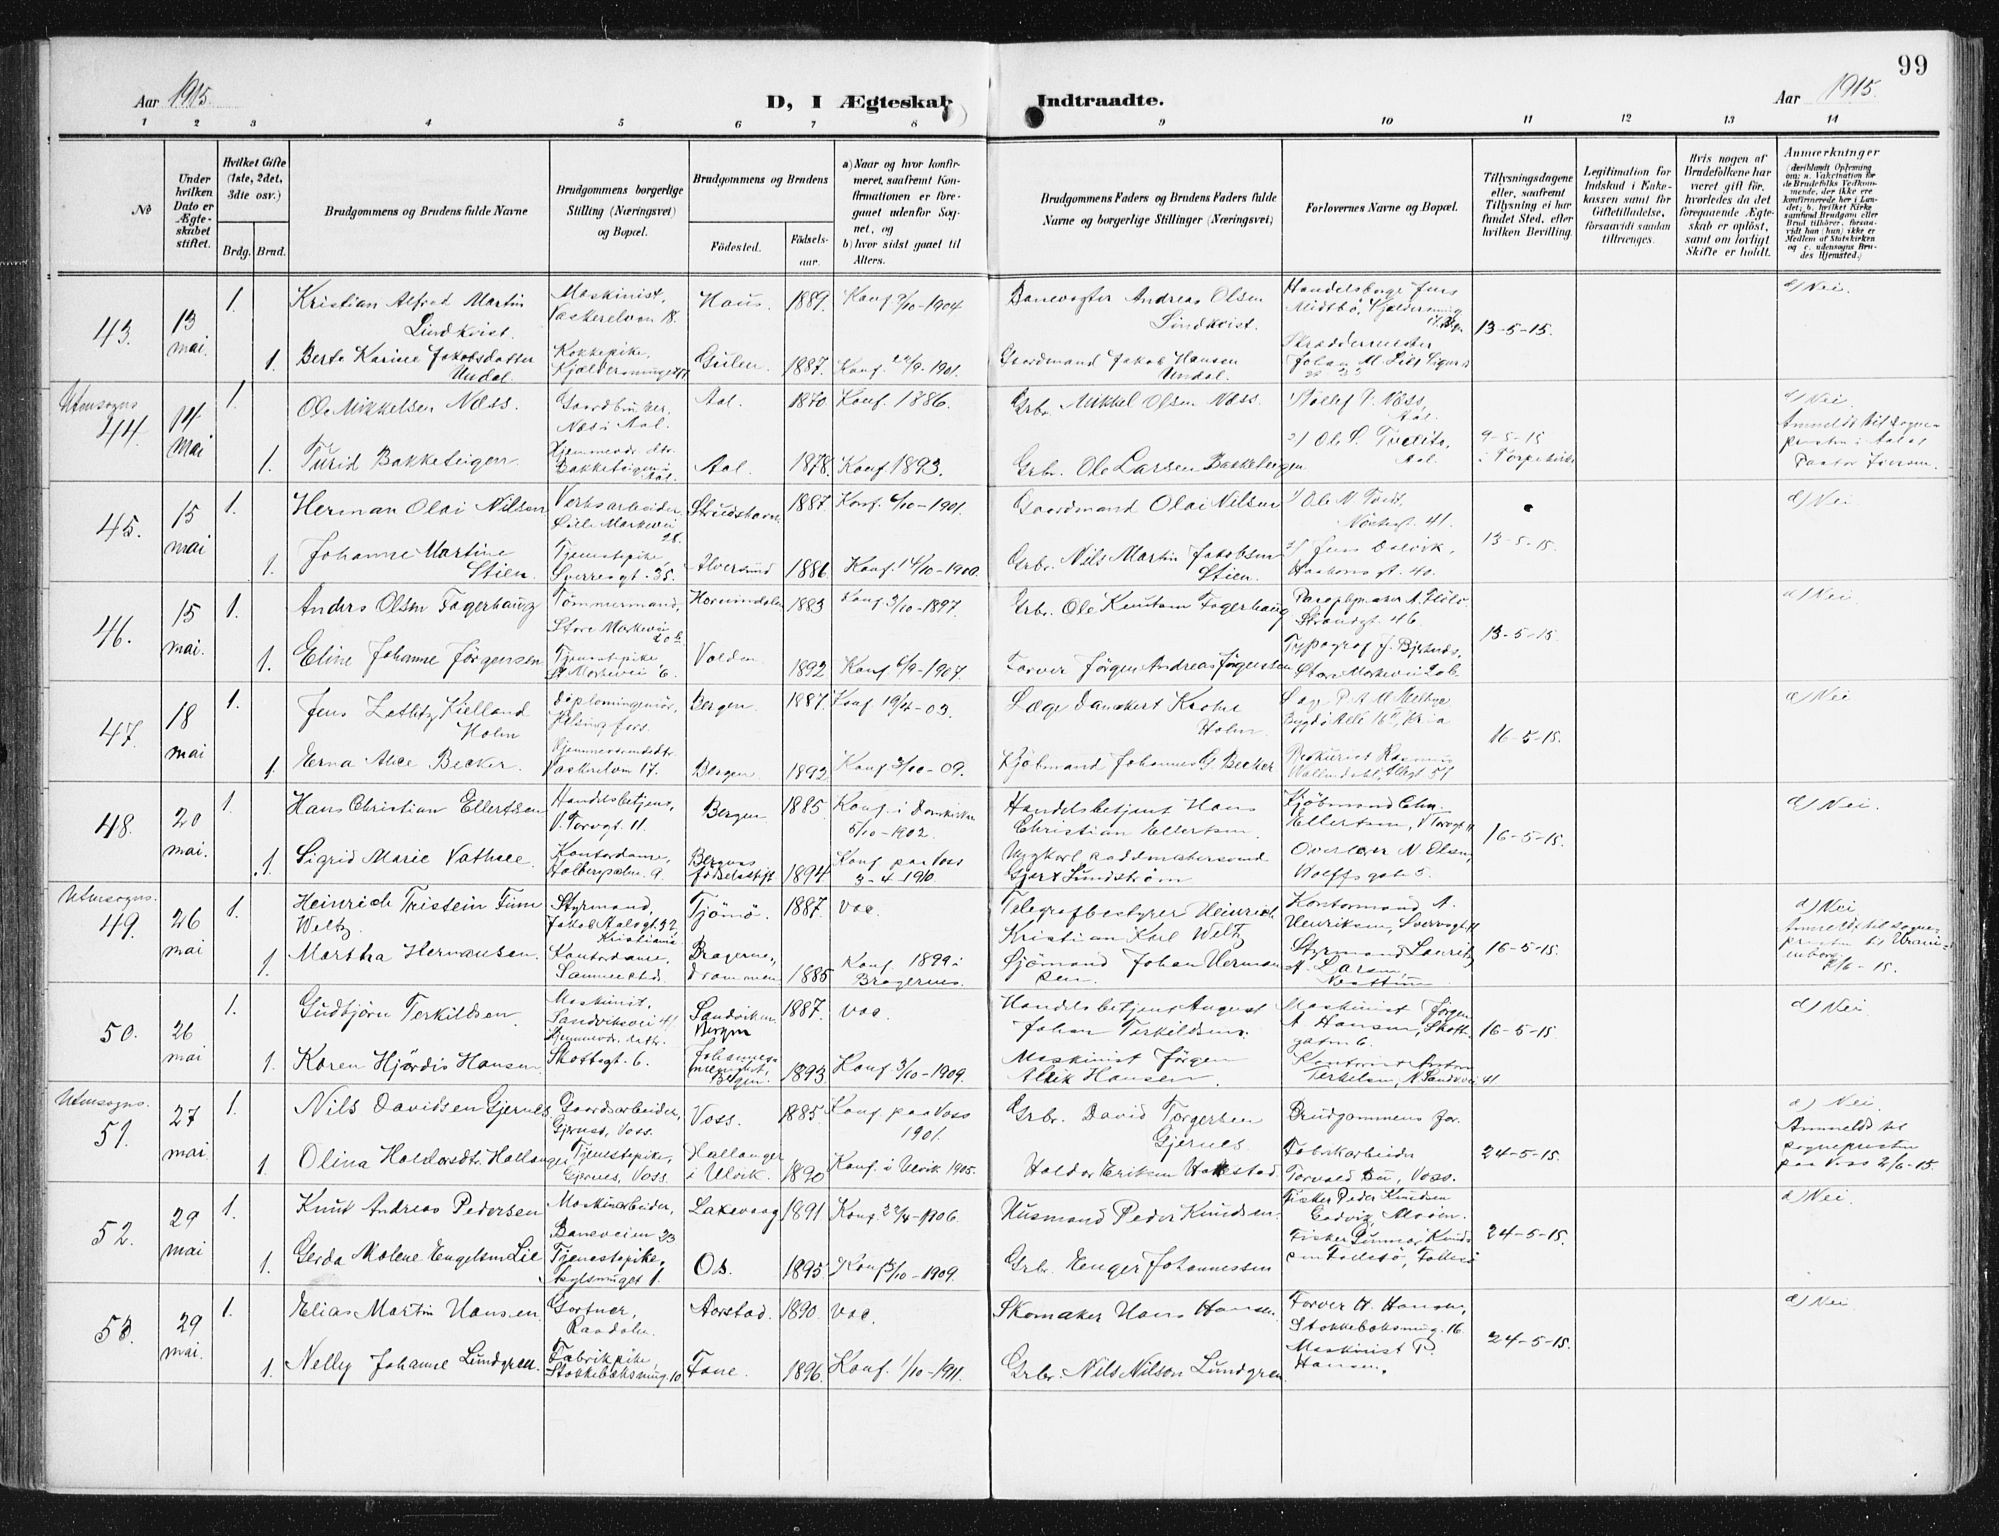 99
Aar 1915.
D, I Ægteskab Indtraadte.
Aar 1915.
1 2 3 4 5 6 7 8 9 10 11 12 13 14
No
Under hvilken Dato er Ægteskabet stiftet.
Hvilket Gifte (1ste, 2det, 3die osv.)
Brdg. Brud.
Brudgommens og Brudens fulde Navne
Brudgommens borgerlige Stilling (Næringsvei) og Bopæl.
Brudgommens og Brudens
Fødested.
Fødselsaar.
a) Naar og hvor konfirmeret, saafremt Konfirmationen er foregaaet udenfor Sognet, og
b) hvor sidst gaaet til Alters.
Brudgommens Faders og Brudens Faders fulde Navne og borgerlige Stillinger (Næringsvei)
Forlovernes Navne og Bopæl.
Tillysningsdagene eller, saafremt Tillysning ei har fundet Sted, efter hvilken Bevilling.
Legitimation for Indskud i Enkekassen samt for Giftetilladelse, forsaavidt saadan tiltrænges.
Hvis nogen af Brudefolkene har været gift før, hvorledes da det foregaaende Ægteskab er opløst, samt om lovligt Skifte er holdt.
Anmærkninger
(deriblandt Oplysning om: a. Vakcination for de Brudefolks Vedkommende, der ikke ere konfirmerede her i Landet; b. hvilket Kirkesamfund Brudgom eller Brud tilhører, forsaavidt han (hun) ikke er Medlem af Statskirken og c. udensogns Brudes Hjemsted.)
43. 13 mai. 1. Kristian Alfred Martin Lindkvist. Maskinist, Vaskerelven 18. Haus 1889 Konf 2/10-1904 Banevogter Andreas Olsen Lindkvist. Midtbö, 13-5-15. c) Nei.
1. Berte Karine Jakobsdatter Undal. Kokkepike, Gulen 1887. Konf. -1901. Gaardmand Jakob Hansen Undal. Skræddermester Johan M.
Utensogns 44. 14 mai 1. Ole Mikkelsen Næss. Gaardbruker, Næss Aal. Aal. 1870 Konf. 1886. Grbr. Mikkel Olsen Næss Næss, Aal. 9-5-15 c) Nei
1. Turid Bakketeigen Hjemmevær. dtr. Bakketeigen i Aal. Aal 1878. Konf 1893. Grbr. Ole Larsen Bakketeigen 2) Ole Aal. Anmeldt til sognepresten i Aal
45. 15 mai 1. Herman Olai Nilsen Verksarbeider, Lille Markevei 28. Strudshavn 1887 Konf 6/10-1901. Gaardmand Olai Nilsen 1) Ole N. Tvedt, Nöstegt 41. 13-5-15. c) Nei
1. Johanne Martine Stien. Tjenestepike, Sverresgt. 35. Alversund 1886 Konf. 14/10-1900. Grbr. Nils Martin Jakobsen Stien. 2) Jens Dalvik, Haakonsgt. 40.
46. 15 mai. 1. Anders Olsen Fagerhaug Tømmermand, Store Markevei 20 b Hornindalen 1883 Konf 3/10-1897. Grbr. Ole Knutsen Fagerhaug Strandgt 46. 13-5-15. c) Nei
1. Eline Johanne Jörgensen Tjenestepike, St Markevei 6. Volden 1892 Konf 6/9-1907. Farver Jörgen Andreas Jörgensen Typograf J. Store Markevei 20 b.
47. 18 mai 1. Jens Zetlitz Kielland Holm diplomingeniör, Helsingfors. Bergen 1887. Konf 19/4-03. Læge Danckert Krohn Holm. Bygdö Allé 16-5-15. c) Nei
1. Erna Alice Becker. Vaskerelven 17. Bergen. 1892 Konf /10-09. Kjöbmand Johannes G. Becker
48. 20 mai. 1. Hans Christian Ellertsen Handelsbetjent, V. Torvgt. 11. Bergen 1885 Konf. i Domkirken 5/10-1902. Handelsbetjent Hans Christian Ellertsen. Kjöbmand Chr. Ellertsen, V Torvgt 11 16-5-15. c) Nei.
1. Sigrid Marie Vathne. Kontordame, Bergens födselsstift 1894 Konf paa Voss 3-4-1910 Gjert Lundström Overlærer N. Olsen, Wolffsgate 5.
Utensogns. 49. 26 mai 1. Heinrich Tristein Finn Weltz Styrmand, Kristiania Tjömö. 1887. vac. Telegrafbestyrer Heinrich Kristian Karl Weltz Kontormand A. Henriksen, 16-5-15. c) Nei
1. Martha Hermansen. Kontordame, Bragernes, Drammen 1885 Konf. 1899 i Bragernes. Sjömand Johan Hermansen. Styrmand Lauritz A. Larsen, Nesttun Anmeldt til sognepresten til Uranienborg 2/6-15.
50. 26 mai 1. Gudbjörn Terkildsen Maskinist, Sandviksvei 41 Sandviken Bergen 1887. vac. Handelsbetjent August Johan Terkildsen. Maskinist Jörgen A Hansen, Skottegaten 6. 16-5-15. c) Nei
1. Karen Hjördis Hansen Skottegt. 6. Johannes menighet, Bergen. 1893 Konf 3/10-1909. Maskinist Jörgen Alrik Hansen. N. Sandvei 41
Utensogns. 51. 27 mai. 1. Nils Davidsen Gjernes Gaardsarbeider, Gjernes, Voss. Voss. 1885 Konf paa Voss 1901. Grbr. David Torgersen Gjernes. Brudgommens far. 24-5-15. c) Nei.
1. Olina Haldorsdtr. Hallanger Tjenestepike, Gjernes, Voss. Hallanger i Ulvik. 1890 Konf. i Ulvik 1905. Haldor Eriksen Fabrikarbeider Torvald Bu, Voss. Anmeldt til sognepresten paa Voss 2/6-15.
52. 29 mai 1. Knut Andreas Pedersen Maskinarbeider, Baneveien 23 Laksevaag 1891 Konf 22/4-1906. Husmand Peder Knudsen. Fisker Peder Knudsen 24-5-15. c) Nei
1. Gerda Malene Engelsen Lie Tjenestepike, Asylsmuget 1. Os. 1895 Konf /10-1909. Grbr. Johannessen Fisker Gunnar Knudsen
53. 29 mai. 1. Elias Martin Hansen Gartner, Raadalen. Aarstad. 1890 vac. Skomaker Hans Hansen. Farver H. Hansen, Stokkebaksmug. 16 24-5-15. c) Nei
1. Nelly Johanne Lundgren. Fabrikpike, Stokkebaksmug. 10 Fane. 1896 Konf. 1/10-1911. Grbr. Nils Nilson Lundgren Maskinist P. Hansen.